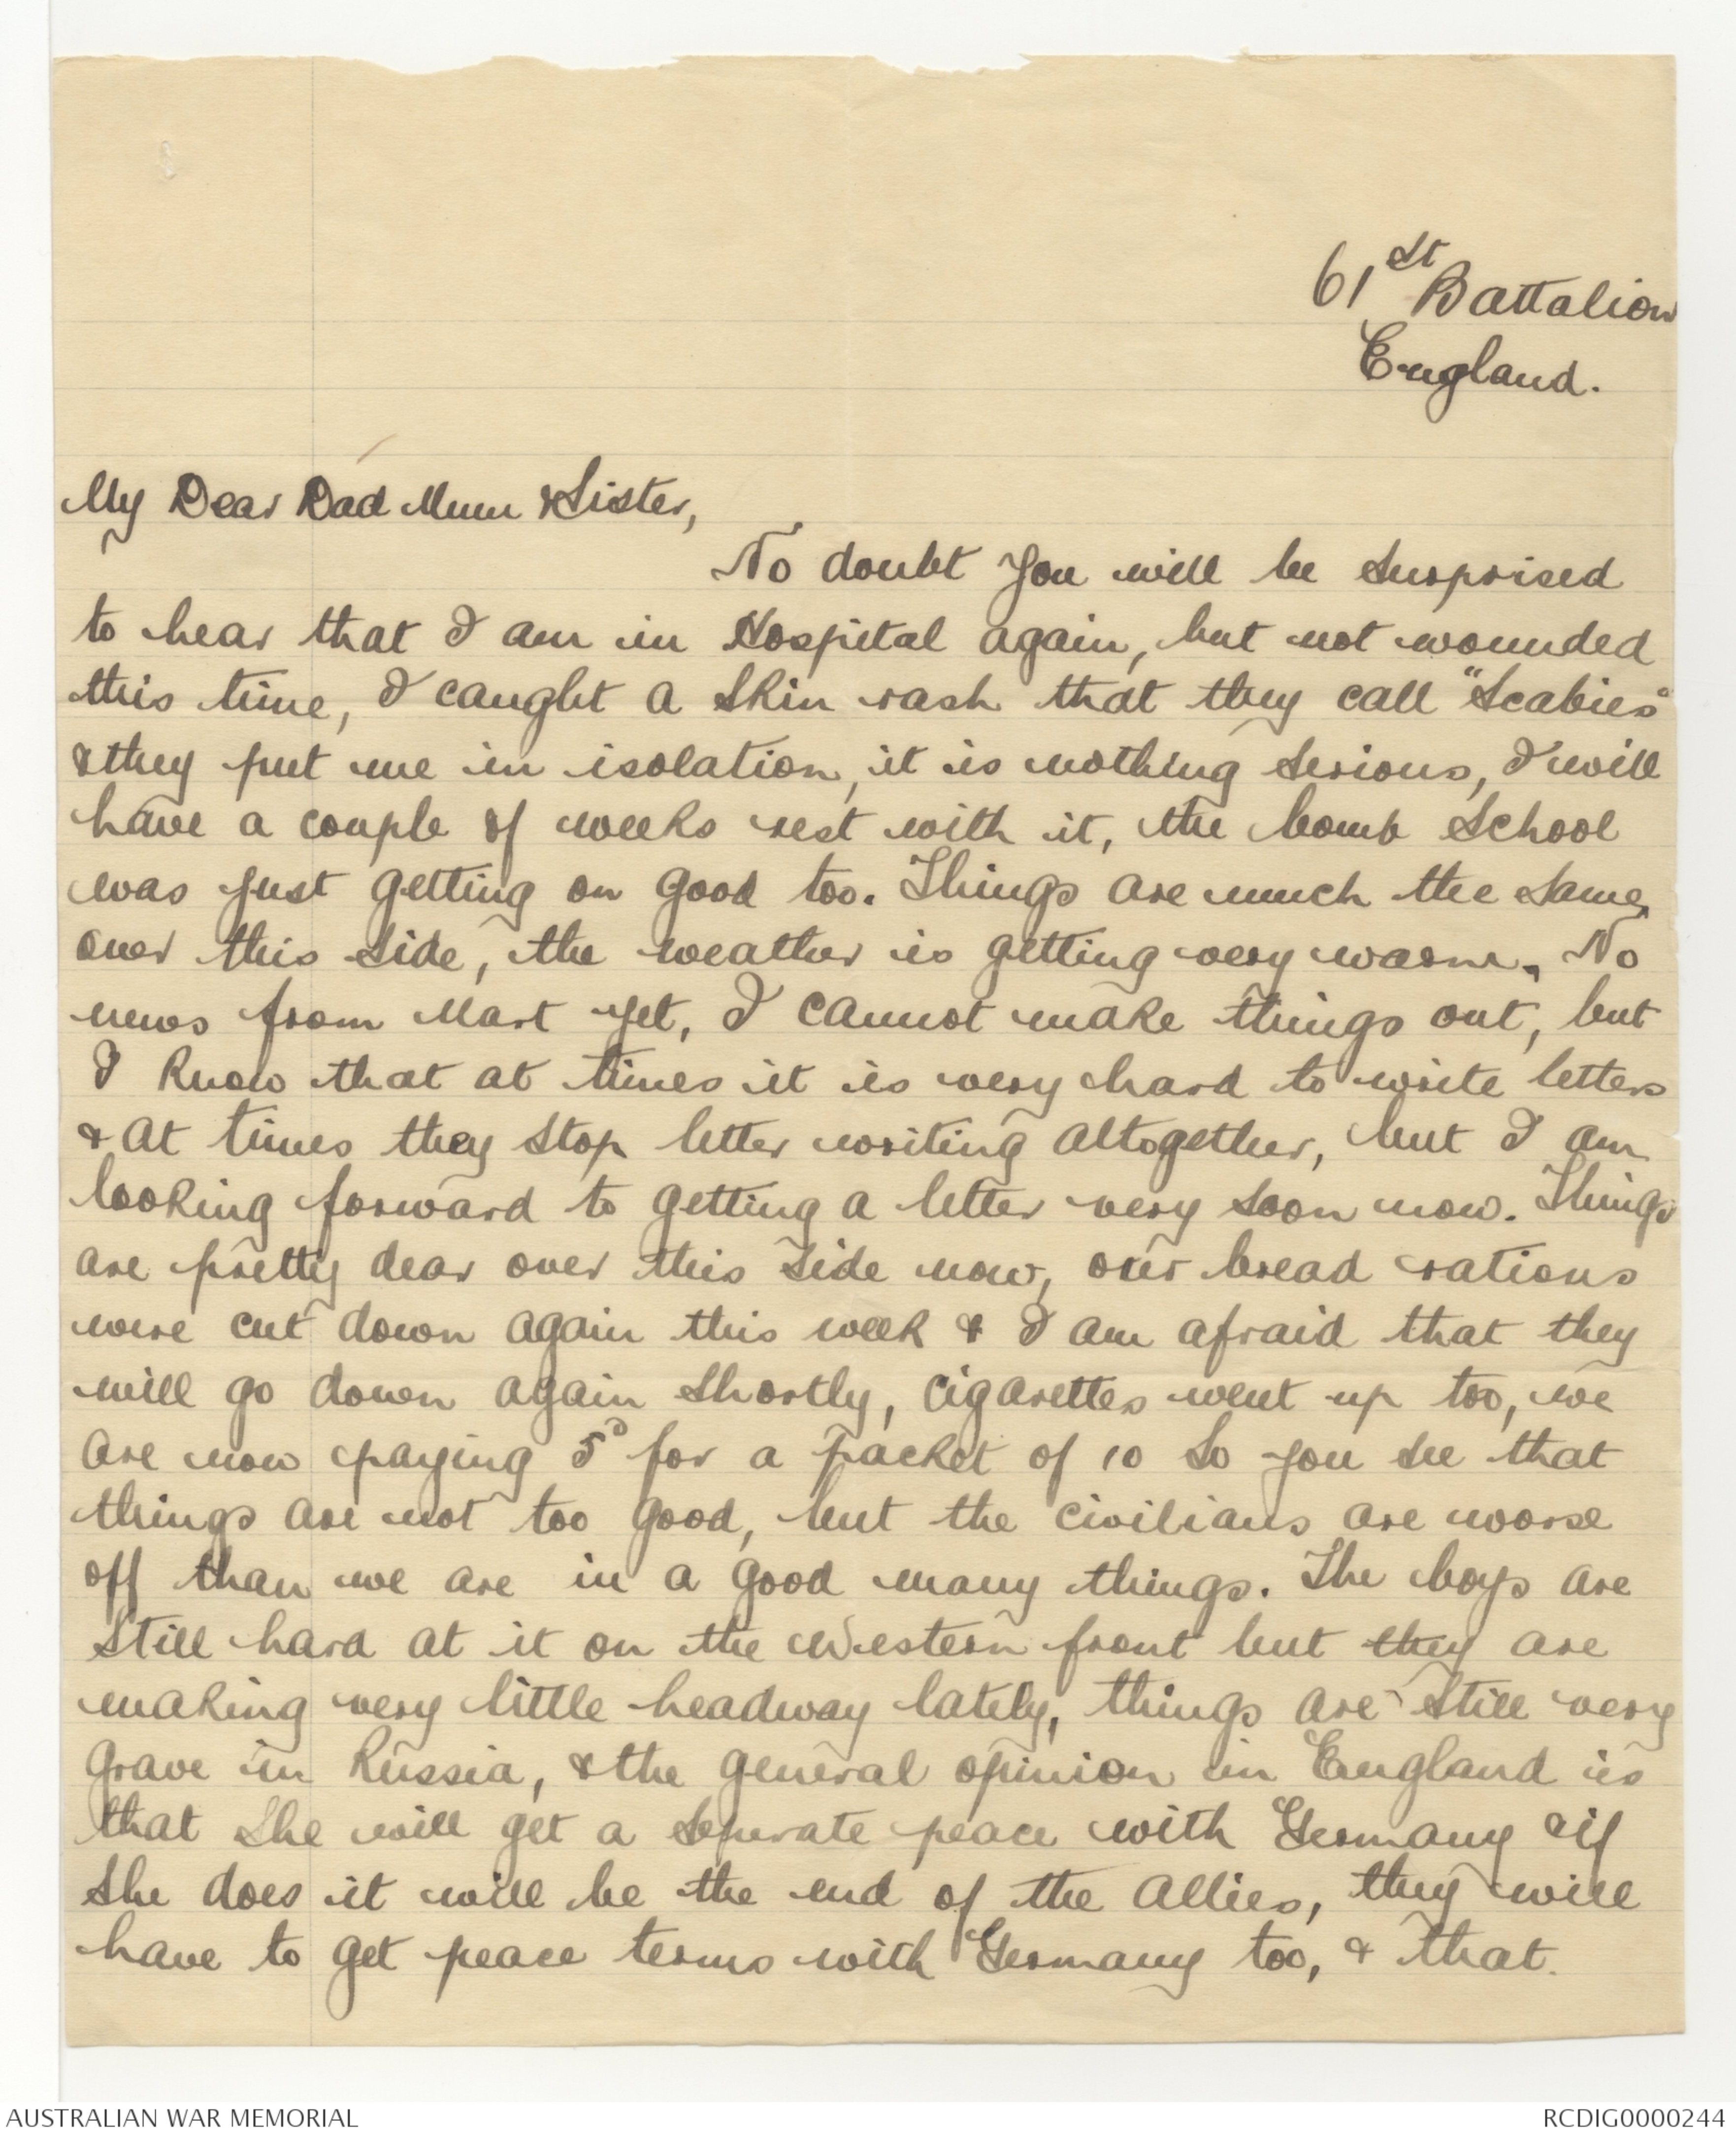 61st Battalion
England.
My Dear Dad Mum & Sister,
No doubt you will be surprised
to hear that I am in Hospital again, but not wounded
this time, I caught a skin rash that they call "Scabies"
& they put me in isolation, it is nothing serious, I will
have a couple of weeks rest with it, the bomb School
was just getting on good too. Things are much the same
over this side, the weather is getting very warm. No
news from Mart yet, I cannot make things out, but
I know that at times it is very hard to write letters
& at times they stop letter writing altogether, but I am
looking forward to getting a letter very soon now. Things
are pretty dear over this side now, our bread rations
were cut down again this week & I am afraid that they
will go down again shortly, cigarettes went up too, we
are now paying 5d for a packet of 10 so you see that
things are not too good, but the civilians are worse
off than we are in a good many things. The boys are
still hard at it on the Western front but they are
making very little headway lately, things are still very
grave in Russia, & the general opinion in England is
that she will get a seperate peace with Germany & if
she does it will be the end of the Allies, they will
have to get peace terms with Germany too, & that.
AUSTRALIAN WAR MEMORIAL
RCDIG0000244